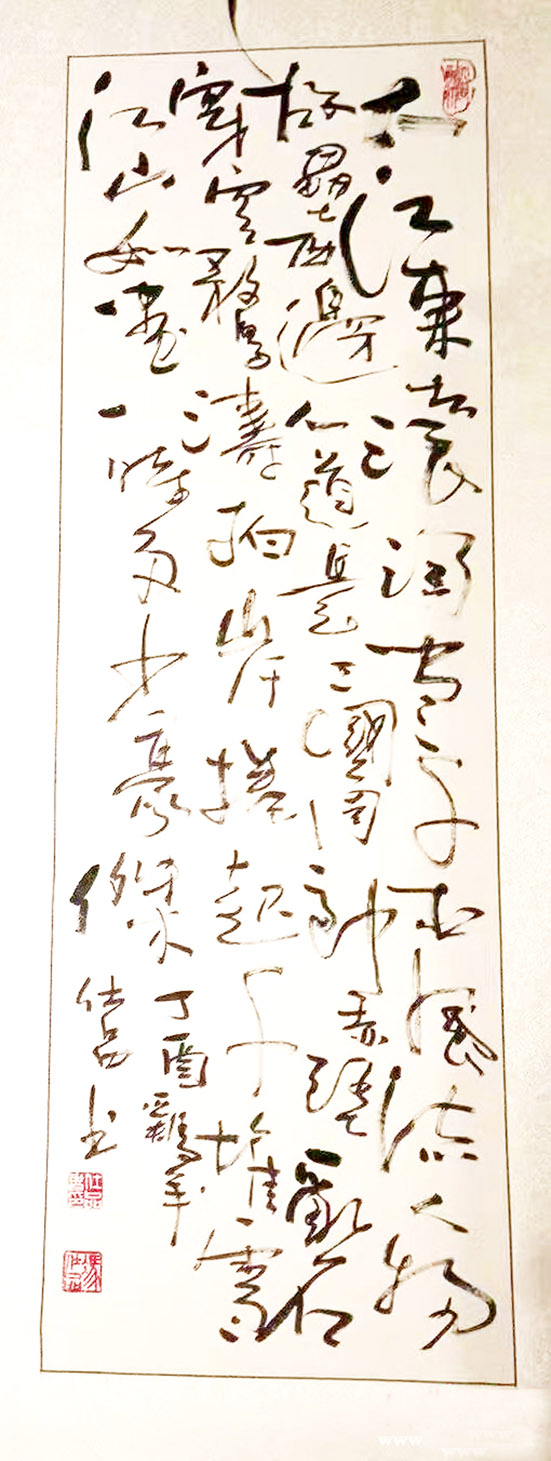 大江東去浪淘盡千古風流人物
故壘西邊人道是三國周郎赤壁亂石
穿雲驚濤拍岸捲起千堆雪
江山如畫一時多少豪傑
丁酉鷄年
仕品书
www.